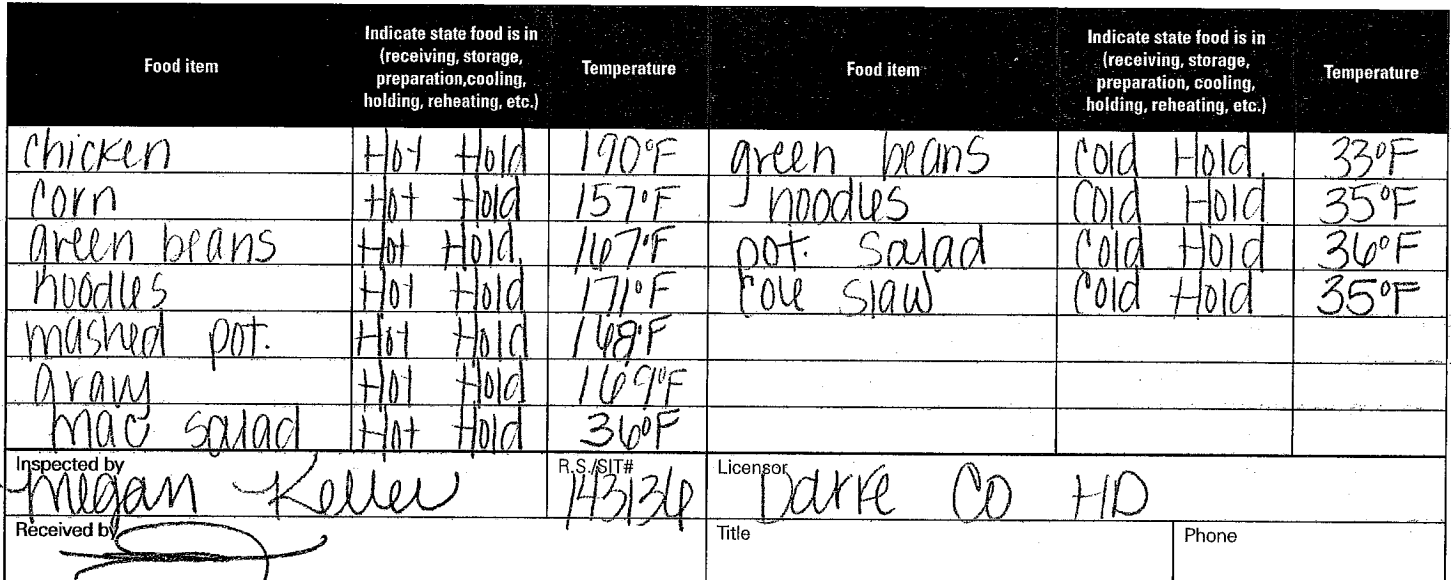 Food item Indicate state food is in (receiving, storage, preparation,cooling, holding, reheating, etc.) Temperature Food item Indicate state food is in (receiving, storage, preparation, cooling, holding, reheating, etc.) Temperature
chicken Hot Hold 190°F green beans Cold Hold 33°F
corn Hot Hold 157°F noodles Cold Hold 35°F
green beans Hot Hold 167°F pot. salad Cold Hold 36°F
noodles Hot Hold 171°F cole slaw Cold Hold 35°F
mashed pot. Hot Hold 168°F
gravy Hot Hold 169°F
mac salad Hot Hold 36°F
Inspected by R.S./SIT# Licensor
Megan Keller 143136 Darke CO HD
Received by Title Phone